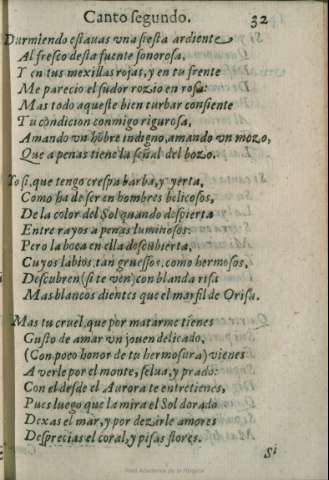 Canto segundo. 32
Durmiendo estauas vna siesta ardiente
Al fresco desta fuente sonorosa,
Y en tus mexillas rojas, y en tu frente
Me parecio el sudor rozio en rosa:
Mas todo aqueste bien turbar consiente
Tu condicion conmigo rigurosa,
Amando vn hõbre indigno, amando vn mozo,
Que a penas tiene la señal del bozo.
Yo si, que tengo crespa barba, y yerta,
Como ha de ser en hombres belicosos,
De la color del Sol quando despierta
Entre rayos a penas luminosos:
Pero la boca en ella descubierta,
Cuyos labios, tan gruessos, como hermosos,
Descubren (si te ven) con blanda risa
Mas blancos dientes que el marfil de Orisa.
Mas tu cruel, que por matarme tienes
Gusto de amar vn jouen delicado,
(Con poco honor de tu hermosura) vienes
A verle por el monte, selua, y prado:
Con el desde el Aurora te entretienes,
Pues luego que la mira el Sol dorado
Dexas el mar, y por dezirle amores
Desprecias el coral, y pisas flores.
Si
Real Academia de la Historia